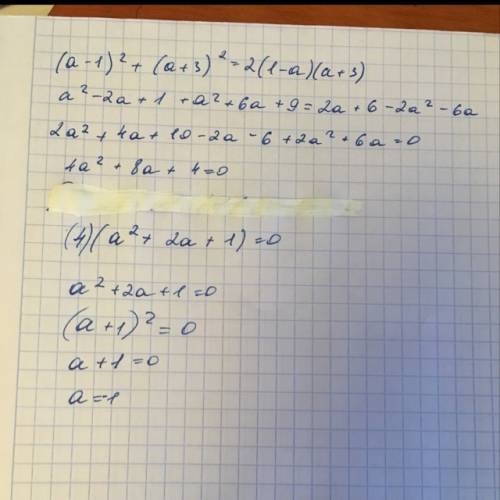 (a-1)² + (a+3)² = 2(1-a)(a+3)
a² - 2a + 1 + a² + 6a + 9 = 2a + 6 - 2a² - 6a
2a² + 4a + 10 - 2a - 6 + 2a² + 6a = 0
4a² + 8a + 4 = 0
(4)(a² + 2a + 1) = 0
a² + 2a + 1 = 0
(a+1)² = 0
a + 1 = 0
a = -1